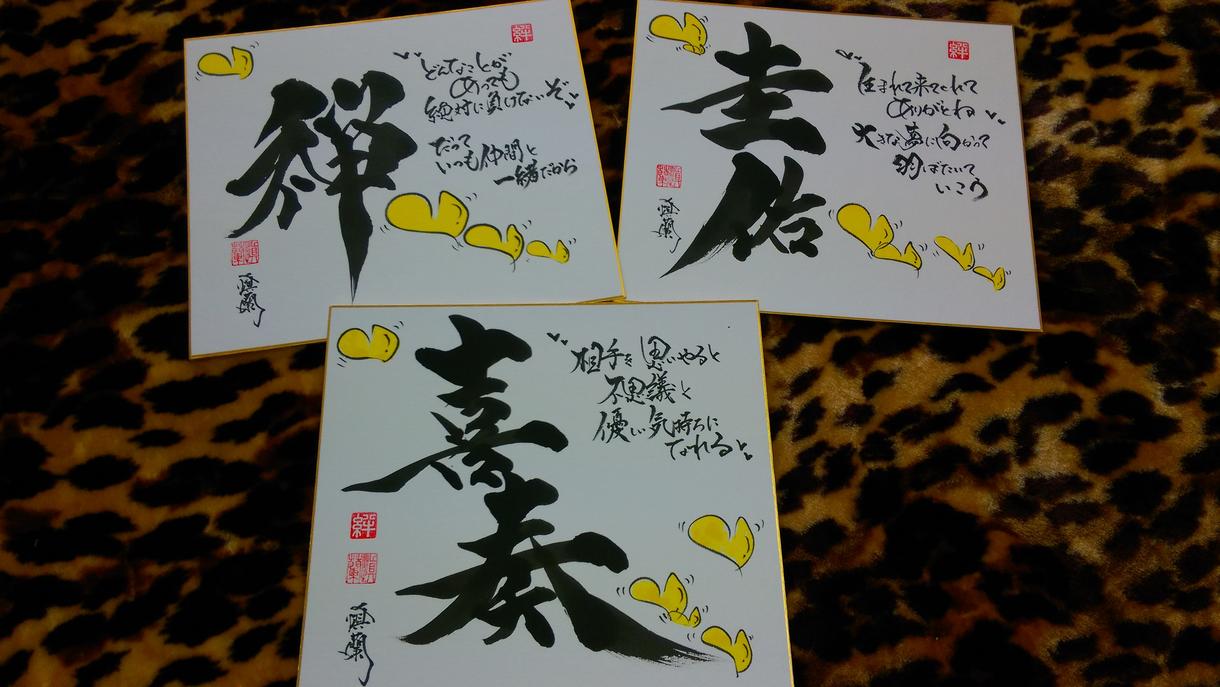 禅
どんなことが
あっても
絶対に負けないぞ
だって
いつも仲間と
一緒だから
絆
圭佑
生まれて来てくれて
ありがとね
大きな夢に向かって
羽ばたいて
いこう
絆
喜奏
相手を思いやると
不思議と
優しい気持ちに
なれる
絆